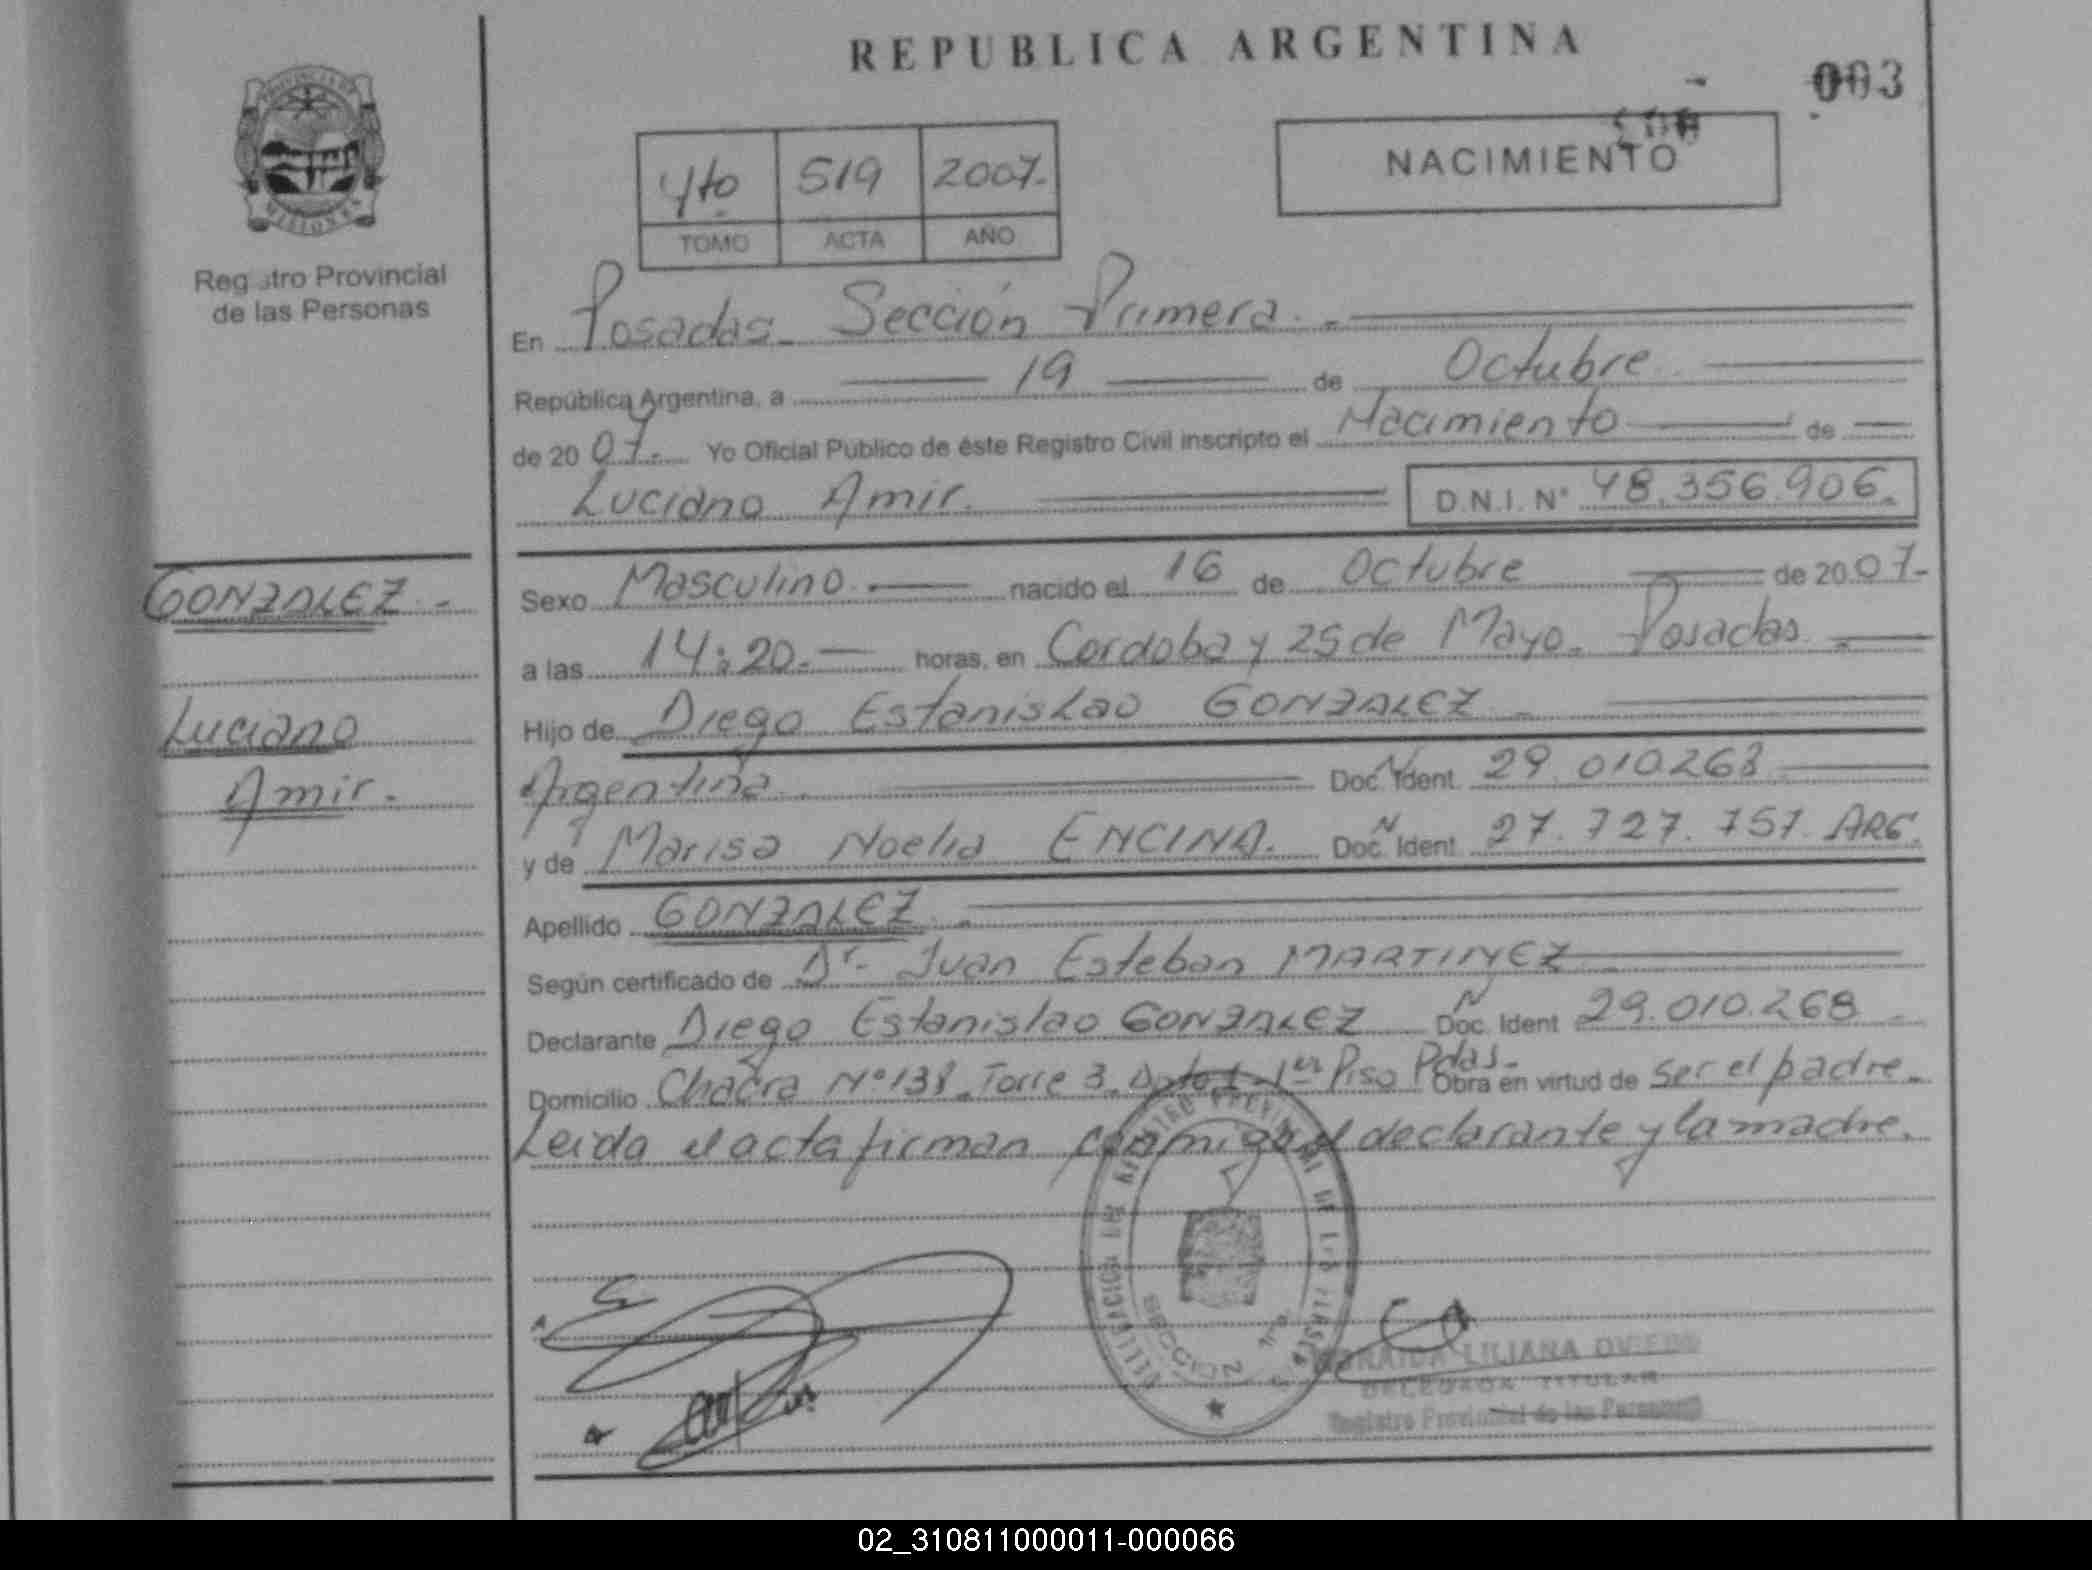 REPUBLICA ARGENTINA
003
PROVINCIA DE
MISIONES
Registro Provincial
de las Personas
4to 519 2007.-
TOMO ACTA AÑO
NACIMIENTO
En Posadas - Sección Primera. -
República Argentina, a 19 de Octubre
de 20 07.- Yo Oficial Público de éste Registro Civil inscripto el Nacimiento de
Luciano Amir. D.N.I. N° 48.356.906.
GONZALEZ. -
Luciano
Amir. -
Sexo Masculino. nacido el 16 de Octubre de 20 07.-
a las 14:20.- horas, en Cordoba y 25 de Mayo. Posadas. -
Hijo de Diego Estanislao GONZALEZ. -
Argentina. Doc. N Ident. 29.010.268
y de Marisa Noelia ENCINA. Doc. N Ident. 27.727.757. ARG.
Apellido GONZALEZ. -
Según certificado de Dr. Juan Esteban MARTINEZ
Declarante Diego Estanislao GONZALEZ Doc. N Ident 29.010.268
Domicilio Chacra N° 138 - Torre 3 - Dpto 1 - 1er Piso Pdas.- Obra en virtud de ser el padre. -
Leida el acta firman conmigo el declarante y la madre.
REGISTRO PROVINCIAL DE LAS PERSONAS
SECCION 1ra
LILIANA
DELEGADA TITULAR
Registro Provincial de las Personas
02_310811000011-000066